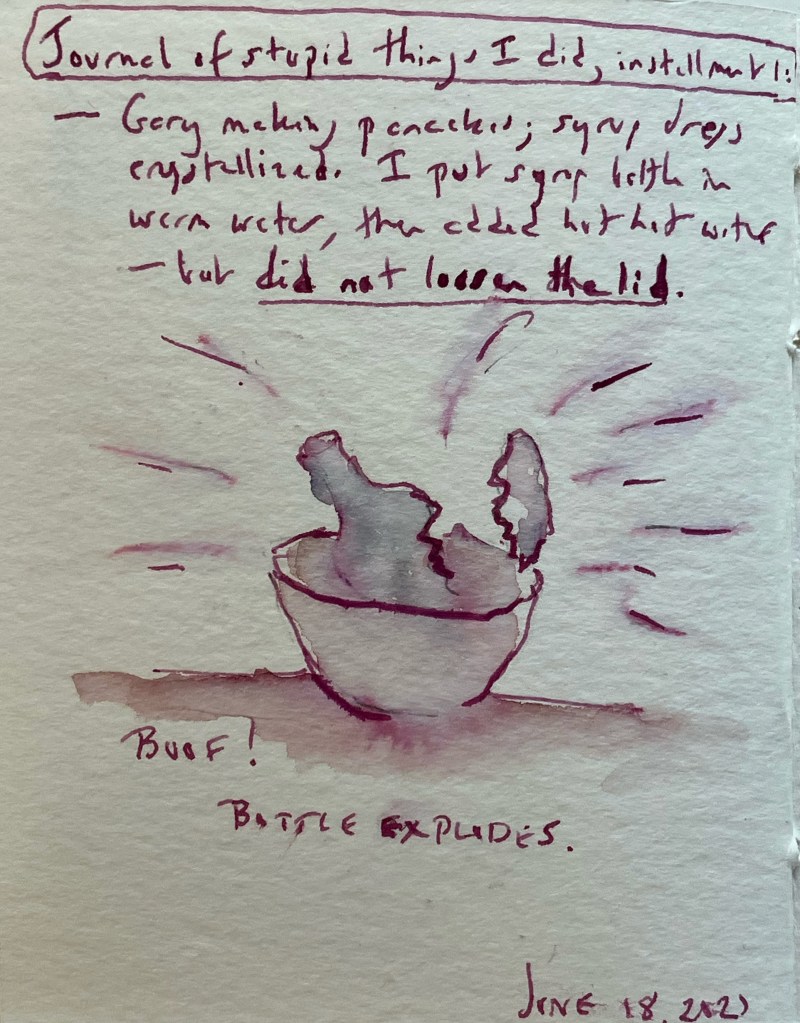 Journal of stupid things I did, installment 1:
— Gary making pancakes; syrup dregs
crystallized. I put syrup bottle in
warm water, then added hot hot water
— but did not loosen the lid.
BOOF!
BOTTLE EXPLODES.
JUNE 18, 2021